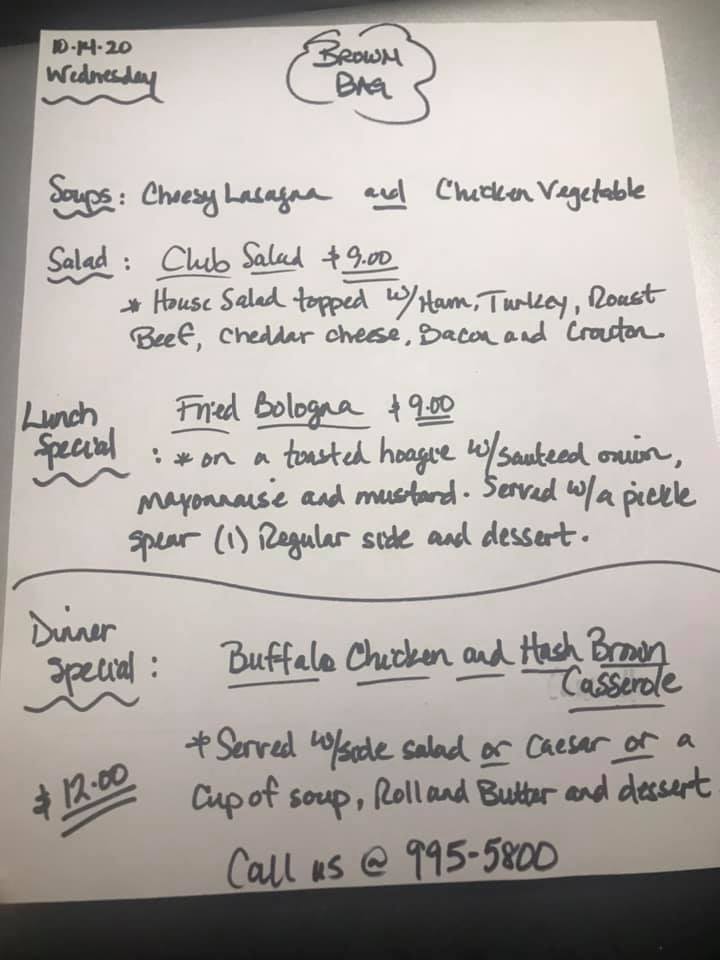 10-14-20
Wednesday
BROWN
BAG
Soups: Cheesy Lasagna and Chicken Vegetable
Salad: Club Salad $9.00
* House Salad topped w/Ham, Turkey, Roast
Beef, Cheddar cheese, Bacon and Crouton.
Lunch
Special
Fried Bologna $9.00
: * on a toasted hoagie w/sauteed onion,
mayonnaise and mustard. Served w/a pickle
spear (1) Regular side and dessert.
Dinner
Special:
Buffalo Chicken and Hash Brown
Casserole
$12.00
* Served w/side salad or Caesar or a
Cup of soup, Roll and Butter and dessert
Call us @ 995-5800